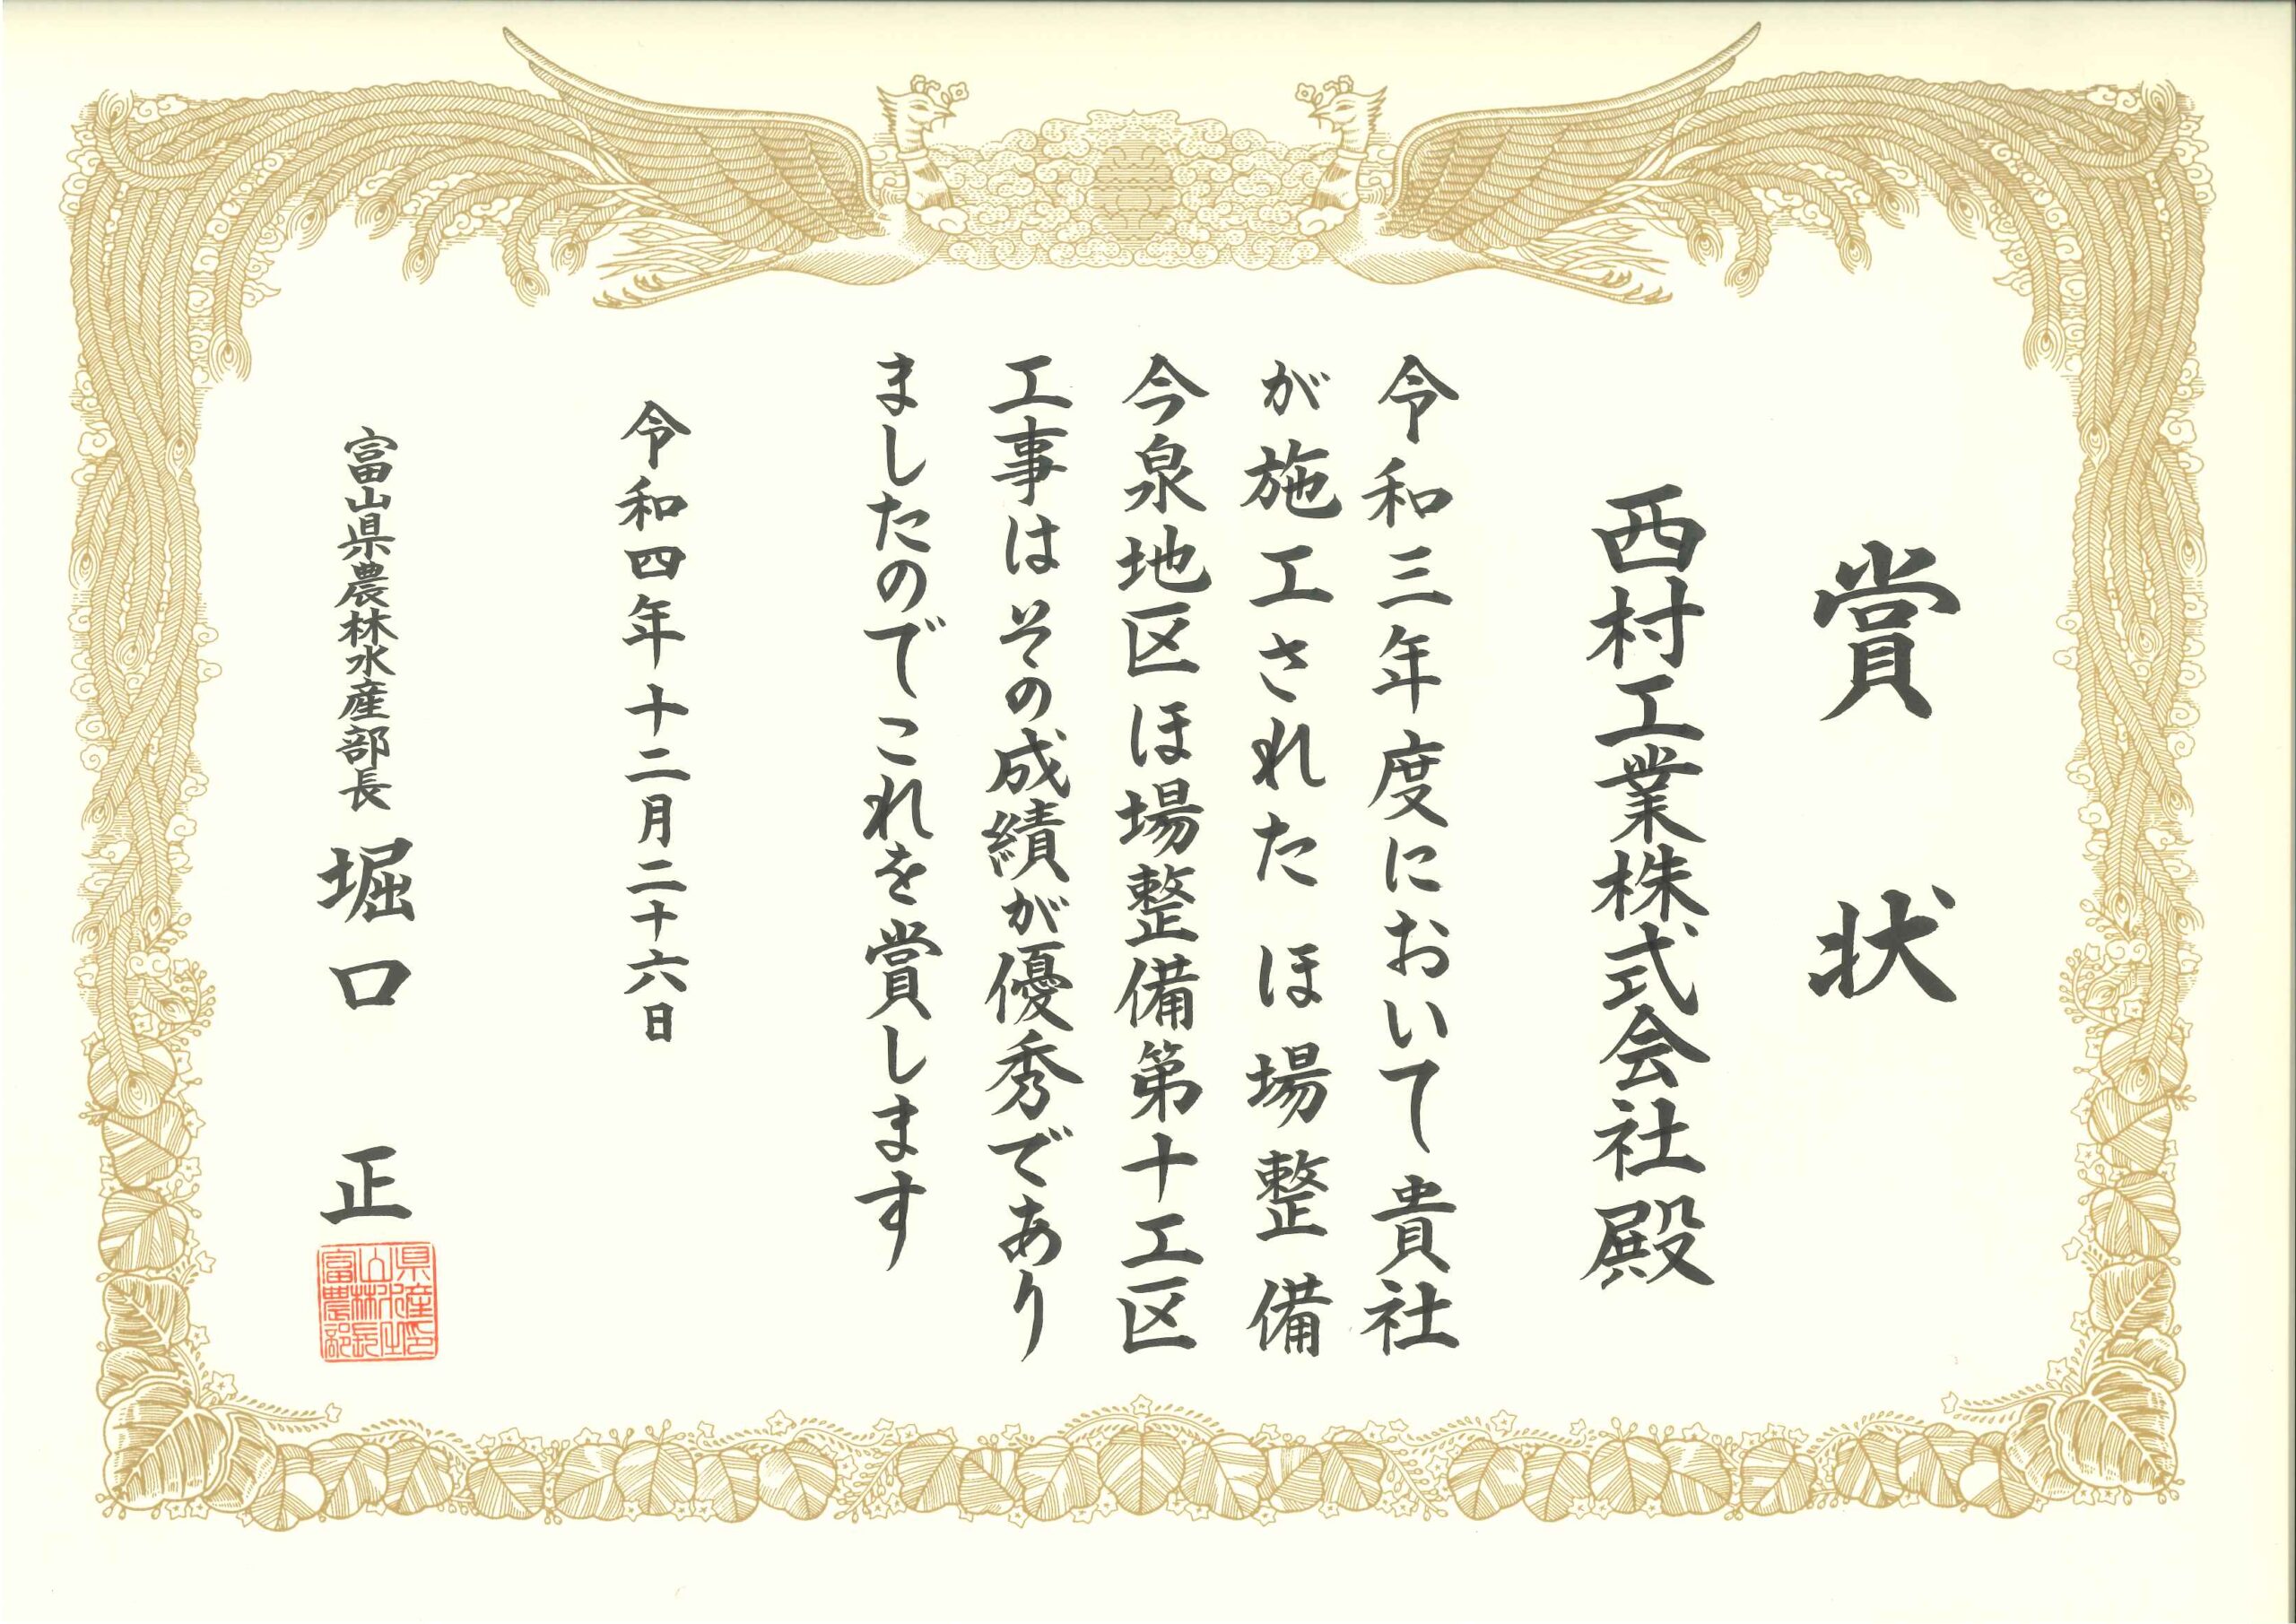 賞状
西村工業株式会社殿
令和三年度において貴社
が施工されたほ場整備
今泉地区ほ場整備第十工区
工事はその成績が優秀であり
ましたのでこれを賞します
令和四年十二月二十六日
富山県農林水産部長 堀口 正
富山県農林水産部長之印